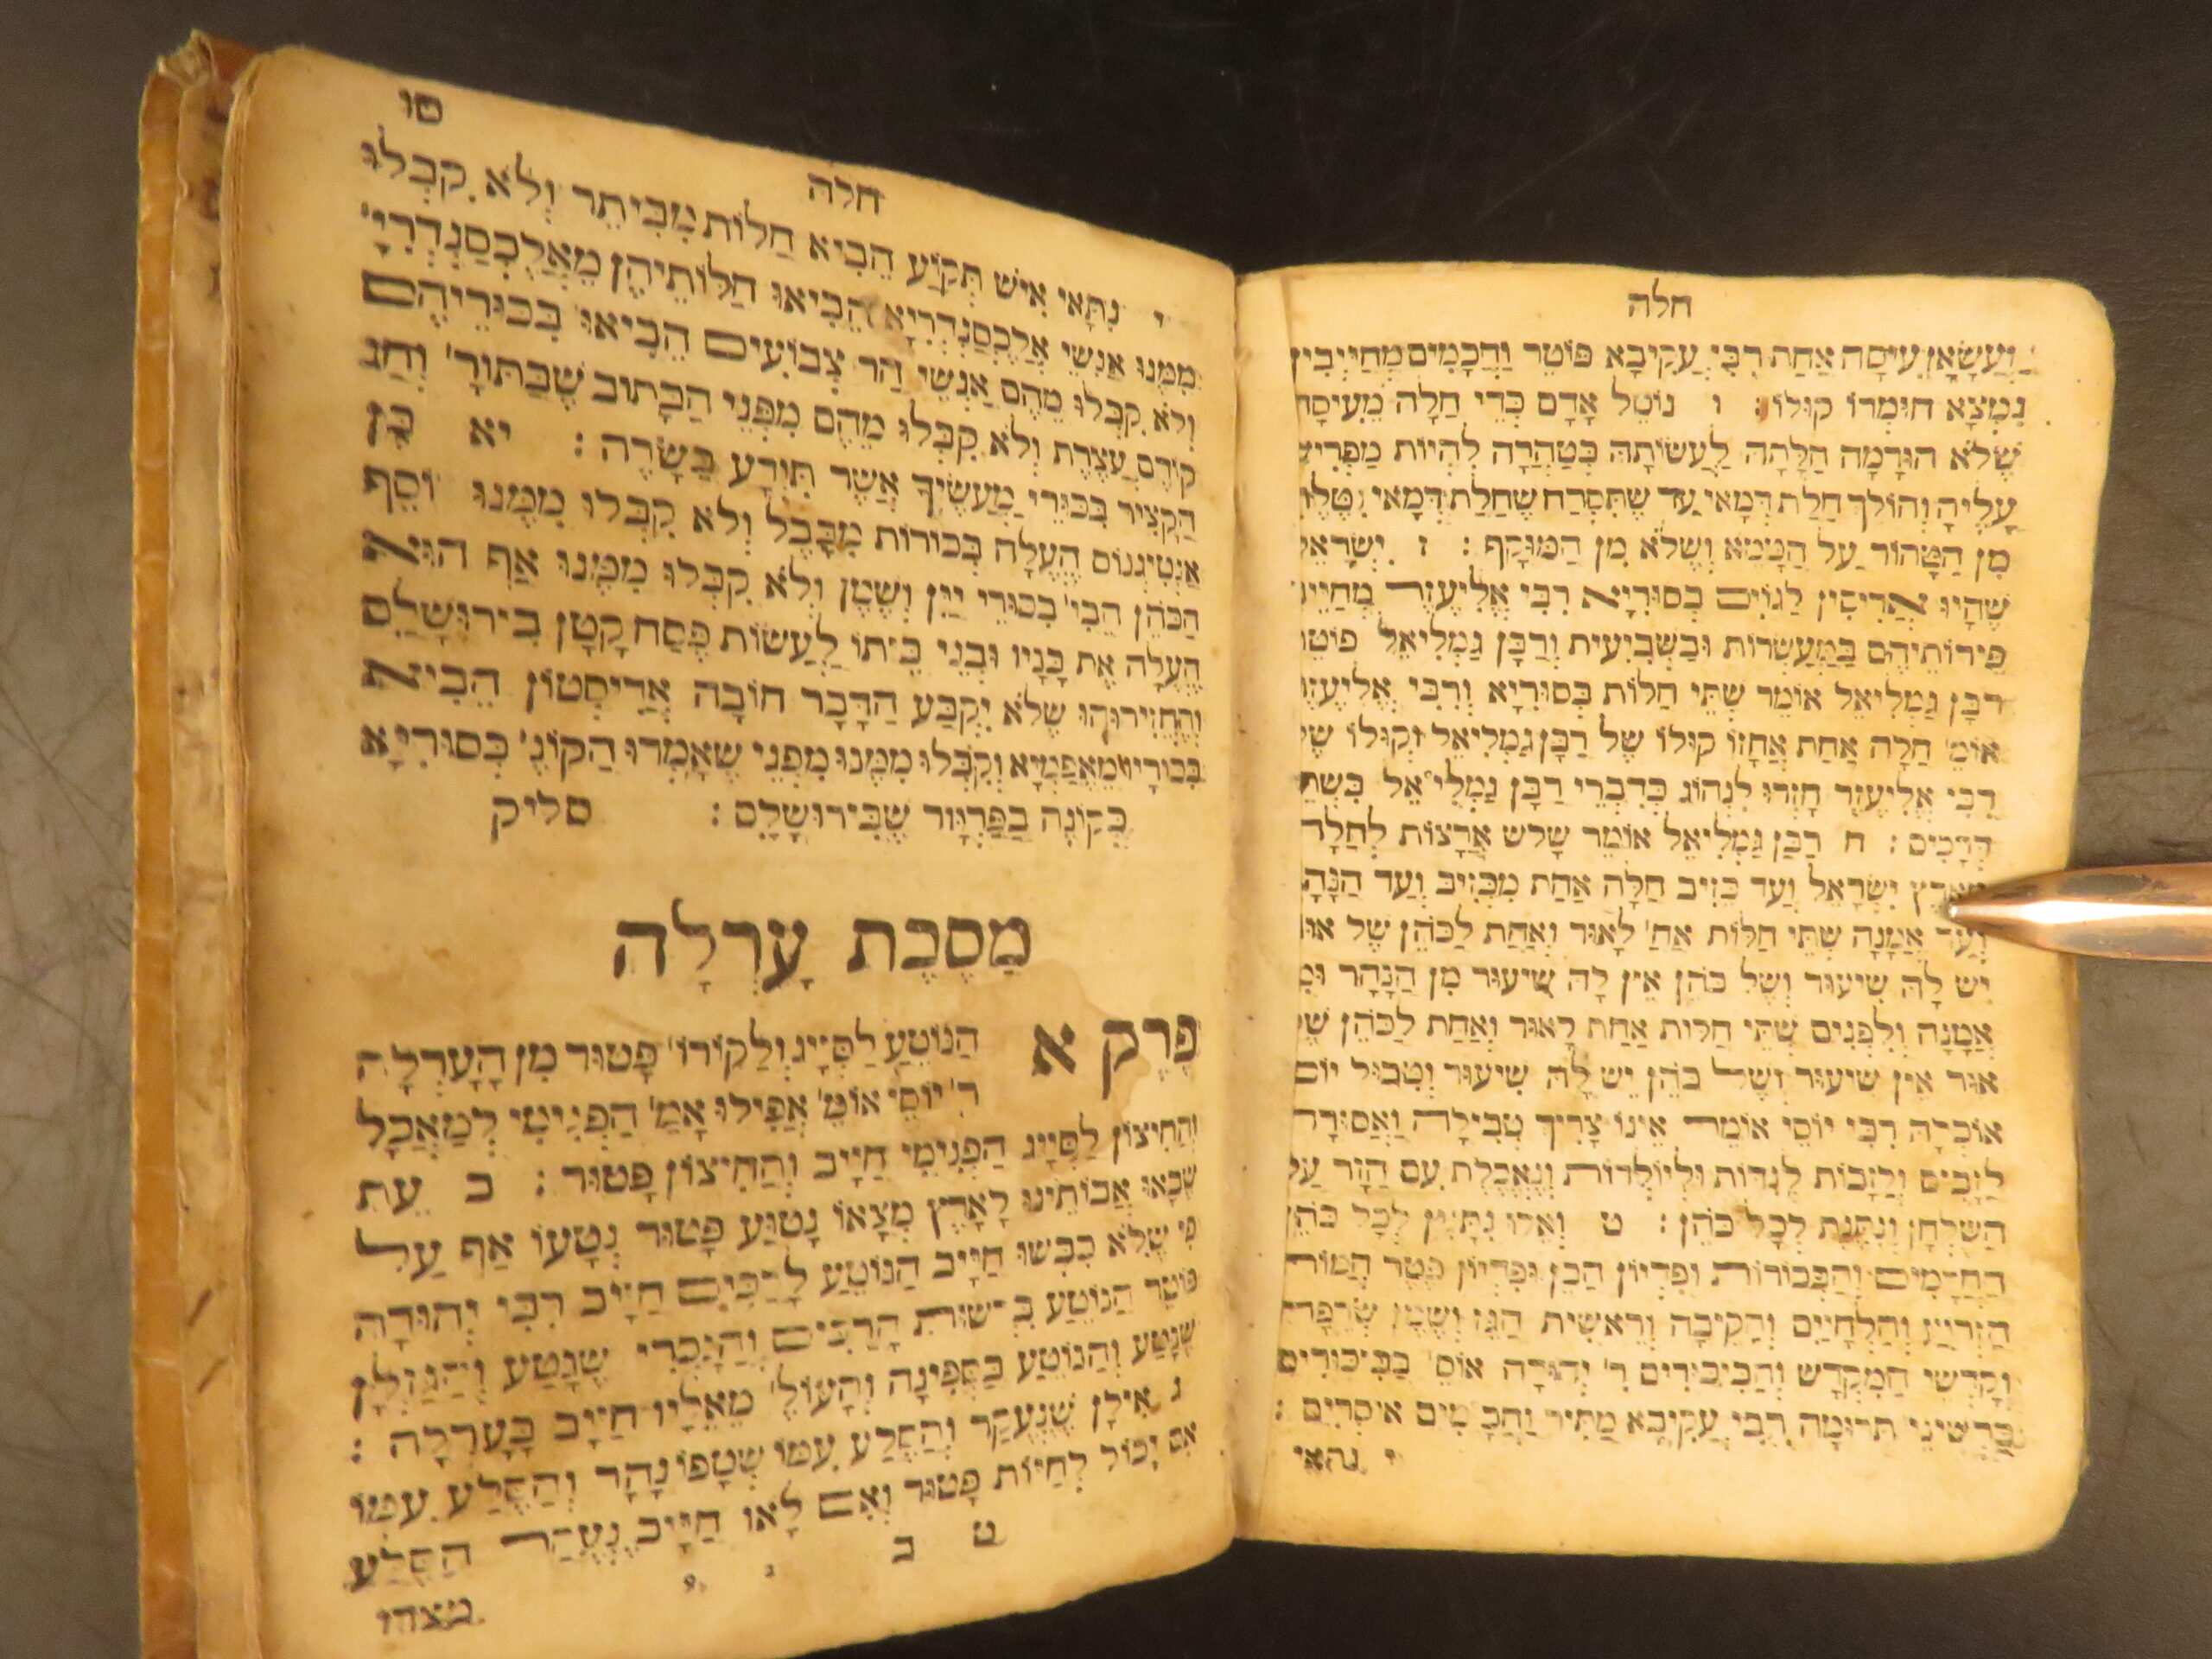 חלה
וַעֲשָׂאָן עִיסָה אַחַת רִבִּי עֲקִיבָא פּוֹטֵר וַחֲכָמִים מְחַיְּיבִין
נִמְצָא חוּמְרוֹ קוּלּוֹ : ו נוֹטֵל אָדָם כְּדֵי חַלָּה מֵעִיסָה
שֶׁלֹּא הוּרְמָה חַלָּתָהּ לַעֲשׂוֹתָהּ בְּטָהֳרָה לִהְיוֹת מַפְרִישׁ
עָלֶיהָ וְהוֹלֵךְ חַלַּת דְּמַאי עַד שֶׁתִּסְרַח שֶׁחַלַּת דְּמַאי נִטֶּלֶת
מִן הַטָּהוֹר עַל הַטָּמֵא וְשֶׁלֹּא מִן הַמּוּקָף : ז יִשְׂרָאֵל
שֶׁהָיוּ אֲרִיסִין לַגּוֹיִם בְּסוּרְיָא רִבִּי אֱלִיעֶזֶר מְחַיֵּיב
פֵּירוֹתֵיהֶם בַּמַּעַשְׂרוֹת וּבַשְּׁבִיעִית וְרַבָּן גַּמְלִיאֵל פּוֹטֵר
רַבָּן גַּמְלִיאֵל אוֹמֵר שְׁתֵּי חַלּוֹת בְּסוּרְיָא וְרִבִּי אֱלִיעֶזֶר
אוֹמֵ' חַלָּה אַחַת אֲחָזוּ קוּלּוֹ שֶׁל רַבָּן גַּמְלִיאֵל וְקוּלּוֹ שֶׁל
רִבִּי אֱלִיעֶזֶר חָזְרוּ לִנְהוֹג כְּדִבְרֵי רַבָּן גַּמְלִיאֵל בִּשְׁתֵּי
דְּרָכִים : ח רַבָּן גַּמְלִיאֵל אוֹמֵר שָׁלֹשׁ אֲרָצוֹת לְחַלָּה
מֵאֶרֶץ יִשְׂרָאֵל וְעַד כְּזִיב חַלָּה אַחַת מִכְּזִיב וְעַד הַנָּהָר
וְעַד אֲמָנָה שְׁתֵּי חַלּוֹת אַחַ' לָאוּר וְאַחַת לַכֹּהֵן שֶׁל אוּר
יֵשׁ לָהּ שִׁיעוּר וְשֶׁל כֹּהֵן אֵין לָהּ שִׁיעוּר מִן הַנָּהָר וּמִ
אֲמָנָה וְלִפְנִים שְׁתֵּי חַלּוֹת אַחַת לָאוּר וְאַחַת לַכֹּהֵן שֶׁל
אוּר אֵין שִׁיעוּר וְשֶׁל כֹּהֵן יֵשׁ לָהּ שִׁיעוּר וּטְבוּל יוֹם
אוֹכְלָהּ רִבִּי יוֹסֵי אוֹמֵר אֵינוֹ צָרִיךְ טְבִילָה וַאֲסוּרָה
לַזָּבִים וְלַזָּבוֹת לַנִּדּוֹת וּלְיוֹלְדוֹת וְנֶאֱכֶלֶת עִם הַזָּר עַל
הַשֻּׁלְחָן וְנִתֶּנֶת לְכָל כֹּהֵן : ט וְאֵלּוּ נִתָּנִין לְכָל כֹּהֵן
הַחֲרָמִים וְהַבְּכוֹרוֹת וּפִדְיוֹן הַבֵּן וּפִדְיוֹן פֶּטֶר חֲמוֹר
הַזְּרוֹעַ וְהַלְּחָיַיִם וְהַקֵּיבָה וְרֵאשִׁית הַגֵּז וְשֶׁמֶן שְׂרֵפָה
וְקָדְשֵׁי הַמִּקְדָּשׁ וְהַבִּיכּוּרִים ר' יְהוּדָה אוֹסֵ' בַּבִּיכּוּרִים
כַּרְשִׁינֵי תְּרוּמָה רִבִּי עֲקִיבָא מַתִּיר וַחֲכָמִים אוֹסְרִים :
י נתאי
טו
חלה
י נִתָּאי אִישׁ תְּקוֹעַ הֵבִיא חַלּוֹת מִבֵּיתֵר וְלֹא קִבְּלוּ
מִמֶּנּוּ אַנְשֵׁי אֲלֶכְּסַנְדְּרִיָא הֵבִיאוּ חַלּוֹתֵיהֶן מֵאֲלֶכְּסַנְדְּרִיָ'
וְלֹא קִבְּלוּ מֵהֶם אַנְשֵׁי הַר צְבוֹעִים הֵבִיאוּ בִּכּוּרֵיהֶם
קוֹדֶם עֲצֶרֶת וְלֹא קִבְּלוּ מֵהֶם מִפְּנֵי הַכָּתוּב שֶׁבַּתּוֹרָ' וְחַג
הַקָּצִיר בִּכּוּרֵי מַעֲשֶׂיךָ אֲשֶׁר תִּזְרַע בַּשָּׂדֶה : יא בֶּן
אַנְטִיגְנוֹס הֶעֱלָה בְּכוֹרוֹת מִבָּבֶל וְלֹא קִבְּלוּ מִמֶּנּוּ יוֹסֵף
הַכֹּהֵן הֵבִי' בִּכּוּרֵי יַיִן וְשֶׁמֶן וְלֹא קִבְּלוּ מִמֶּנּוּ אַף הוּא
הֶעֱלָה אֶת בָּנָיו וּבְנֵי בֵּיתוֹ לַעֲשׂוֹת פֶּסַח קָטָן בִּירוּשָׁלַםִ
וְהֶחֱזִירוּהוּ שֶׁלֹּא יִקָּבַע הַדָּבָר חוֹבָה אֲרִיסְטוֹן הֵבִיא
בִּכּוּרָיו מֵאַפַּמְיָא וְקִבְּלוּ מִמֶּנּוּ מִפְּנֵי שֶׁאָמְרוּ הַקּוֹנֶ' בְּסוּרְיָא
כְּקוֹנֶה בַּפַּרְוָור שֶׁבִּירוּשָׁלַםִ : סליק
מַסֶּכֶת עָרְלָה
פֶּרֶק א הַנּוֹטֵעַ לַסְּיָיג וְלַקּוֹרוֹ' פָּטוּר מִן הָעָרְלָה
ר' יוֹסֵי אוֹמֵ' אֲפִילוּ אָמַ' הַפְּנִימִי לְמַאֲכָל
וְהַחִיצוֹן לַסְּיָיג הַפְּנִימִי חַיָּיב וְהַחִיצוֹן פָּטוּר : ב עֵת
שֶׁבָּאוּ אֲבוֹתֵינוּ לָאָרֶץ מָצְאוּ נָטוּעַ פָּטוּר נָטְעוּ אַף עַל
פִּי שֶׁלֹּא כִבְּשׁוּ חַיָּיב הַנּוֹטֵעַ לָרַבִּים חַיָּיב רִבִּי יְהוּדָה
פּוֹטֵר הַנּוֹטֵעַ בִּרְשׁוּת הָרַבִּים וְהַנָּכְרִי שֶׁנָּטַע וְהַגַּזְלָן
שֶׁנָּטַע וְהַנּוֹטֵעַ בַּסְּפִינָה וְהָעוֹלֶ' מֵאֵלָיו חַיָּיב בָּעָרְלָה :
ג אִילָן שֶׁנֶּעֱקַר וְהַסֶּלַע עִמּוֹ שְׁטָפוֹ נָהָר וְהַסֶּלַע עִמּוֹ
אִם יָכוֹל לִחְיוֹת פָּטוּר וְאִם לָאו חַיָּיב נֶעֱקַר הַסֶּלַע
ט ב
מצדו